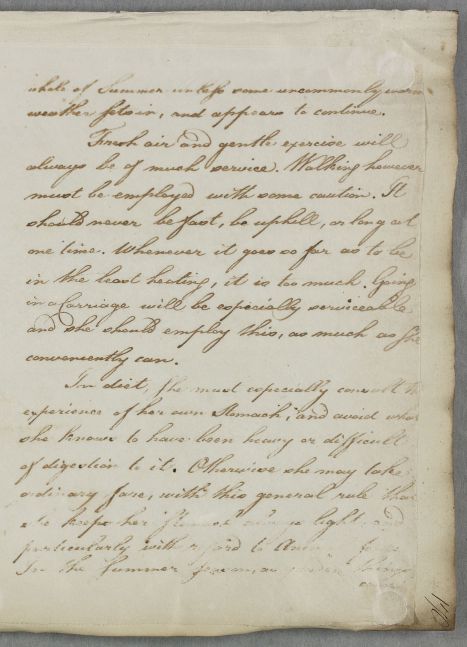 whole of Summer unless some uncommonly warm
weather sets in, and appears to continue.
Fresh air and gentle exercise will
always be of much service. Walking however
must be employed with some caution. It
should never be fast, be uphill, or long at
one time. Whenever it goes so far as to be
in the least heating, it is too much. Going
in a Carriage will be especially serviceable
and she should employ this, as much as she
conveniently can.
In diet, she must especially consult the
experience of her own Stomach, and avoid what
she knows to have been heavy or difficult
of digestion to it. Otherwise she may take
ordinary fare, with this general rule that
she keeps her always light, and
particularly with regard to
In the Summer season, as